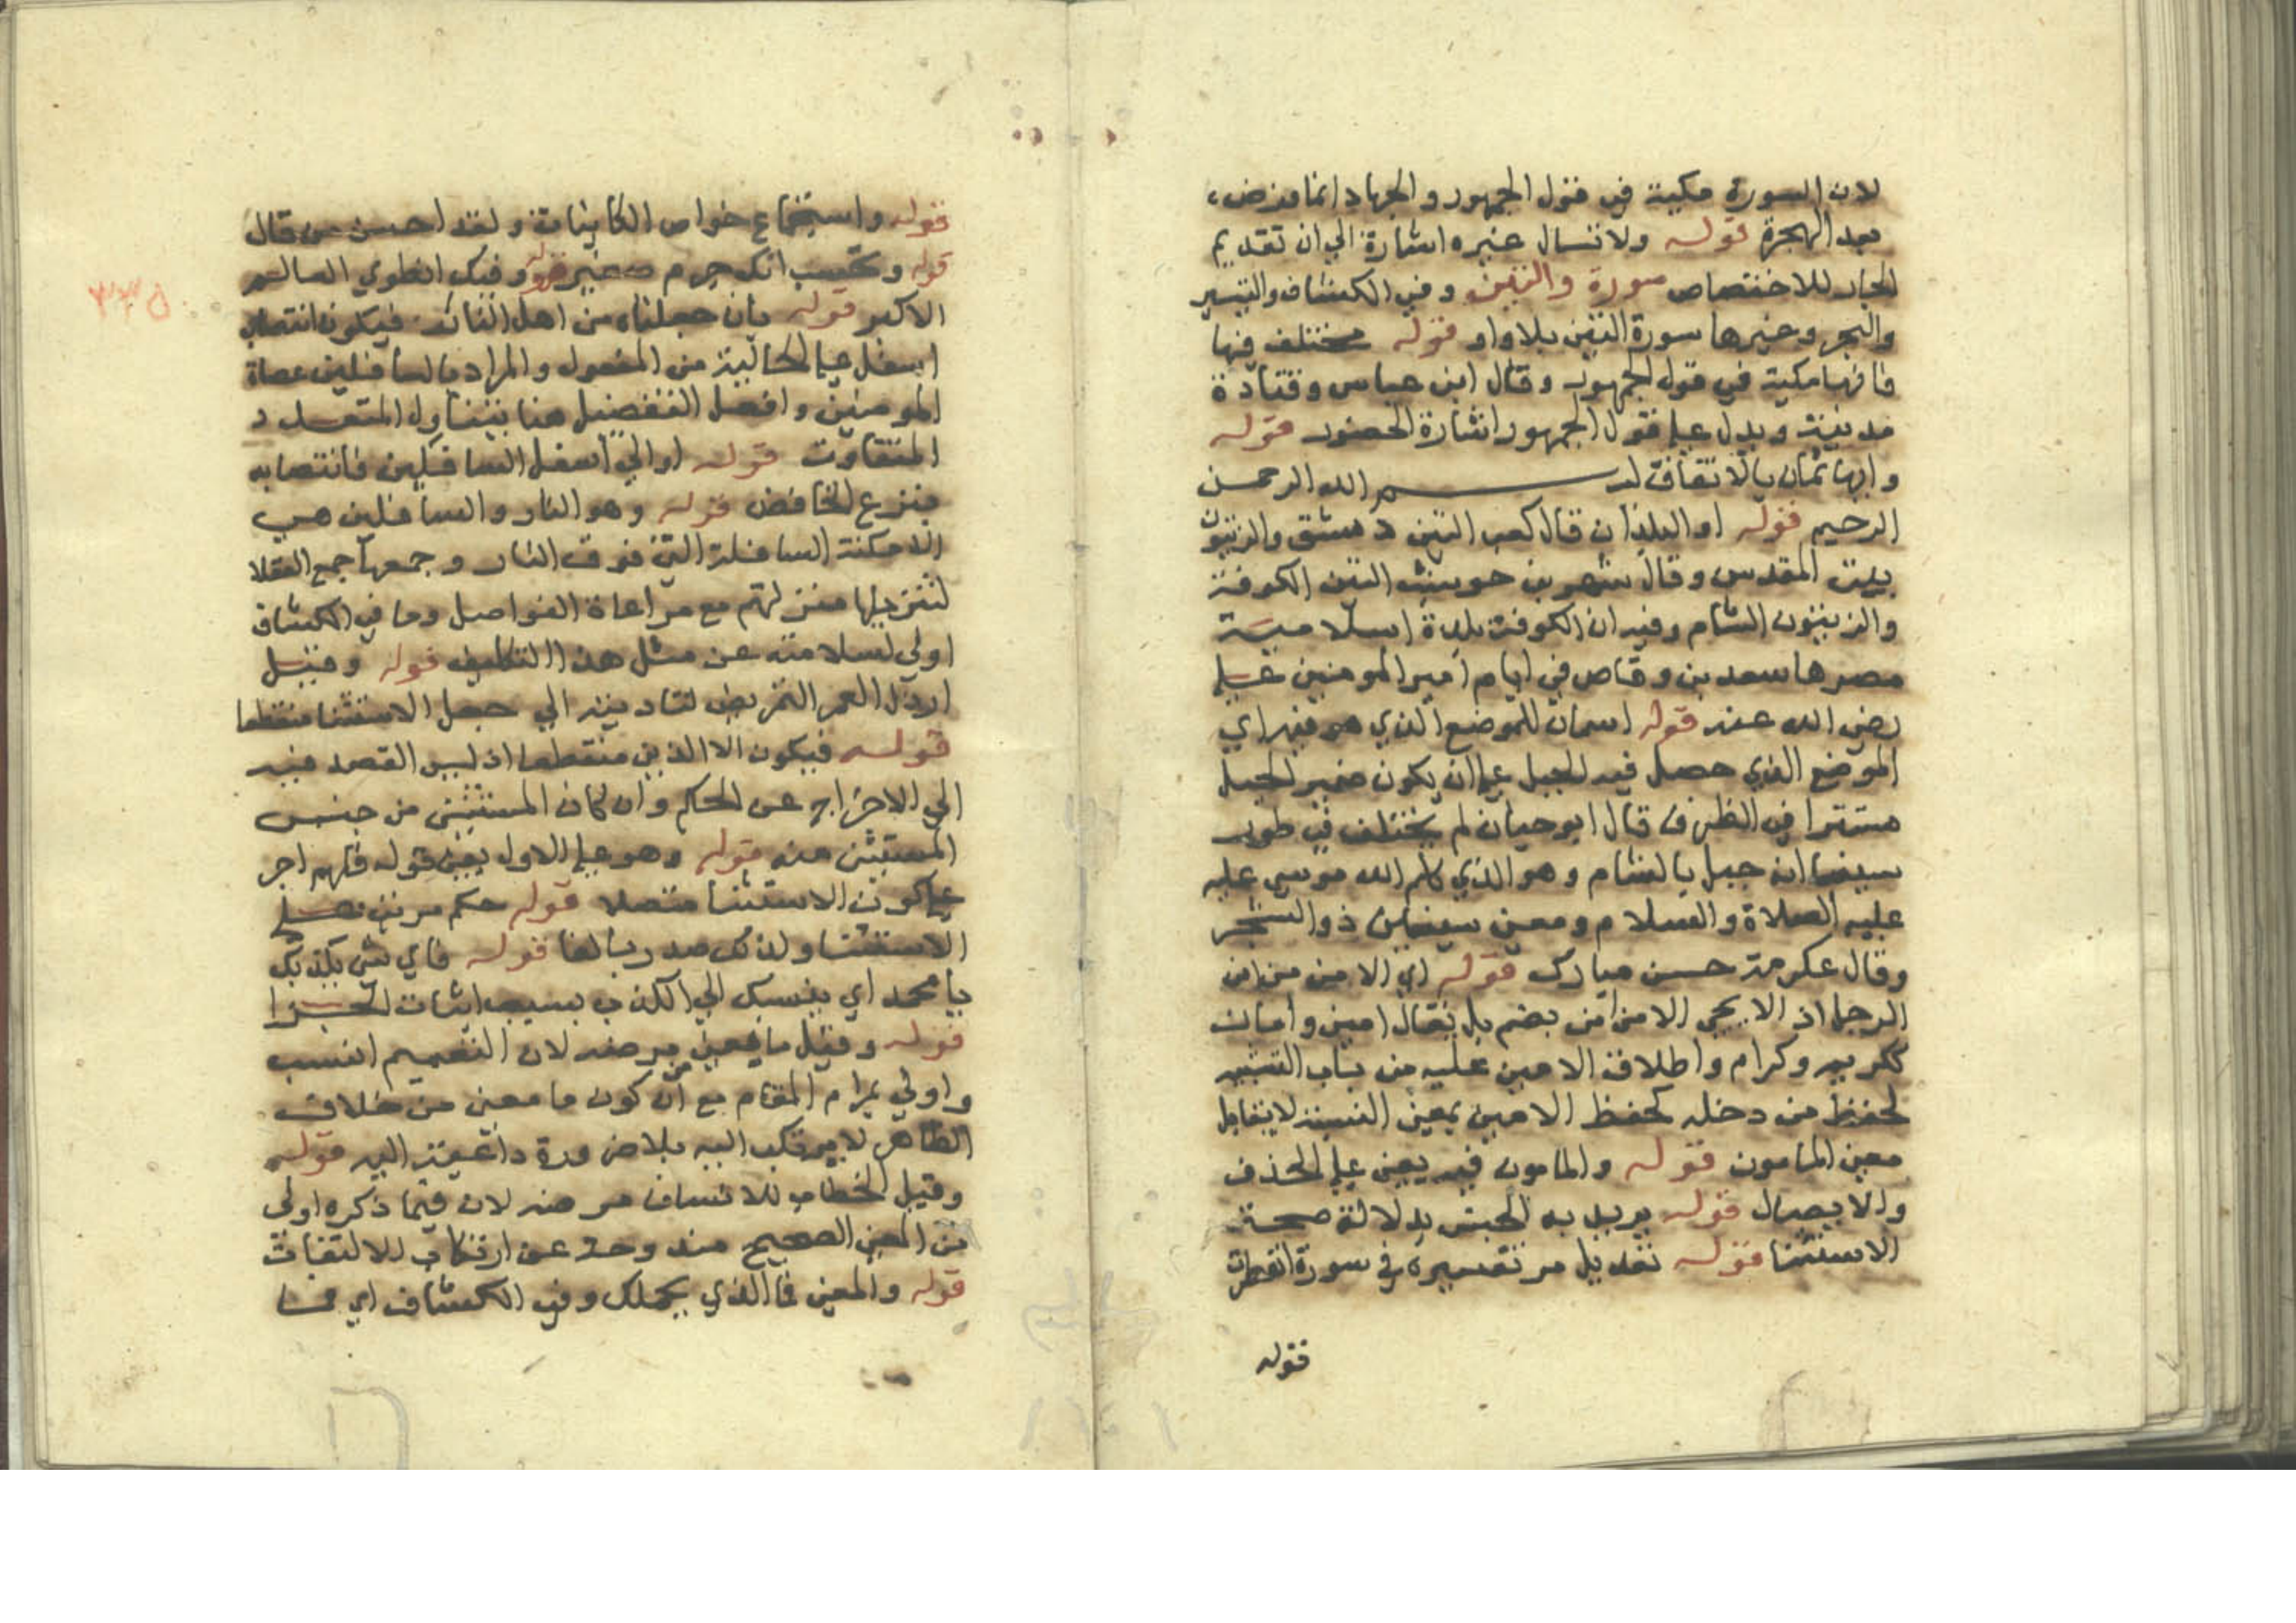 لان السورة مكية في قول الجمهور والجهاد انما فرض
بعد الهجرة قوله ولا تسال غيره اشارة الي ان تقديم
الجار للاختصاص سورة والتين وفي الكشاف والتيسير
والبحر وغيرها سورة التين بلا واو قوله مختلف فيها
فانها مكية في قول الجمهور وقال ابن عباس وقتادة
مدنية ويدل علي قول الجمهور اشارة الحضور قوله
وايها ثمان بالاتفاق بسم الله الرحمن
الرحيم قوله او البلدان قال كعب التين دمشق والزيتون
بيت المقدس وقال شهر بن حوشب التين الكوفة
والزيتون الشام وفيه ان الكوفة بلدة اسلامية
مصرها سعد بن وقاص في ايام امير المومنين علي
رضي الله عنه قوله اسمان للموضع الذي هو فيه اي
الموضع الذي حصل فيه الجبل علي ان يكون ضمير الجبل
مستترا في الظرف قال ابو حيان لم يختلف في طور
سينا انه جبل بالشام وهو الذي كلم الله موسي عليه
عليه الصلاة والسلام ومعني سينين ذو الشجر
وقال عكرمة حسن مبارك قوله اي الامن من امن
الرجل اذ لا يجي الامن امن بضم بل يقال امين وامان
ككريم وكرام واطلاق الامين عليه من باب التشبيه
لحفظ من دخله كحفظ الامين بمعني النسبة لا يقابل
معني المامون قوله والمامون فيه يعني علي الحذف
والايصال قوله يريد به الجنس بدلالة صحة
الاستثنا قوله تعديل مر تفسيره في سورة انفطرت
قوله
قوله واستجماع خواص الكاينات ولقد احسن من قال
قوله وتحسب انك جرم صغير قوله وفيك انطوي العالم
الاكبر قوله بان جعلناه من اهل النار فيكون انتصاب
اسفل علي الحالية من المفعول والمراد بالسافلين عصاة
المومنين وافعل التفضيل هنا يتناول المتعدد
المتفاوت قوله او الي اسفل السافلين فانتصابه
بنزع الخافض قوله وهو النار والسافلين هي
الامكنة السافلة التي فوق النار وجمعها جمع العقلا
لتنزيلها منزلتهم مع مراعاة الفواصل وما في الكشاف
اولي لسلامته عن مثل هذا التكليف قوله وقيل
ارذل العمر التمريض لتاديته الي جعل الاستثنا منقطعا
قوله فيكون الا الذين منقطعا اذ ليس القصد فيه
الي الاخراج عن الحكم وان كان المستثني من جنس
المستثني منه قوله وهو علي الاول يعني قوله فلهم اجر
علي كون الاستثنا متصلا قوله حكم مرتب علي
الاستثنا ولذلك صدر بالفا قوله فاي شي يكذبك
يا محمد اي ينسبك الي الكذب بسبب اثبات الجزا
قوله وقيل ما بمعني من مرضه لان التعميم انسب
واولي بمرام المقام مع ان كون ما معني من خلاف
الظاهر لا يرتكب اليه بلا ضرورة داعية اليه قوله
وقيل الخطاب للانسان مرضه لان فيما ذكره اولى
من المعني الصحيح مندوحة عن ارتكاب الالتفات
قوله والمعني فما الذي يحملك وفي الكشاف اي فما